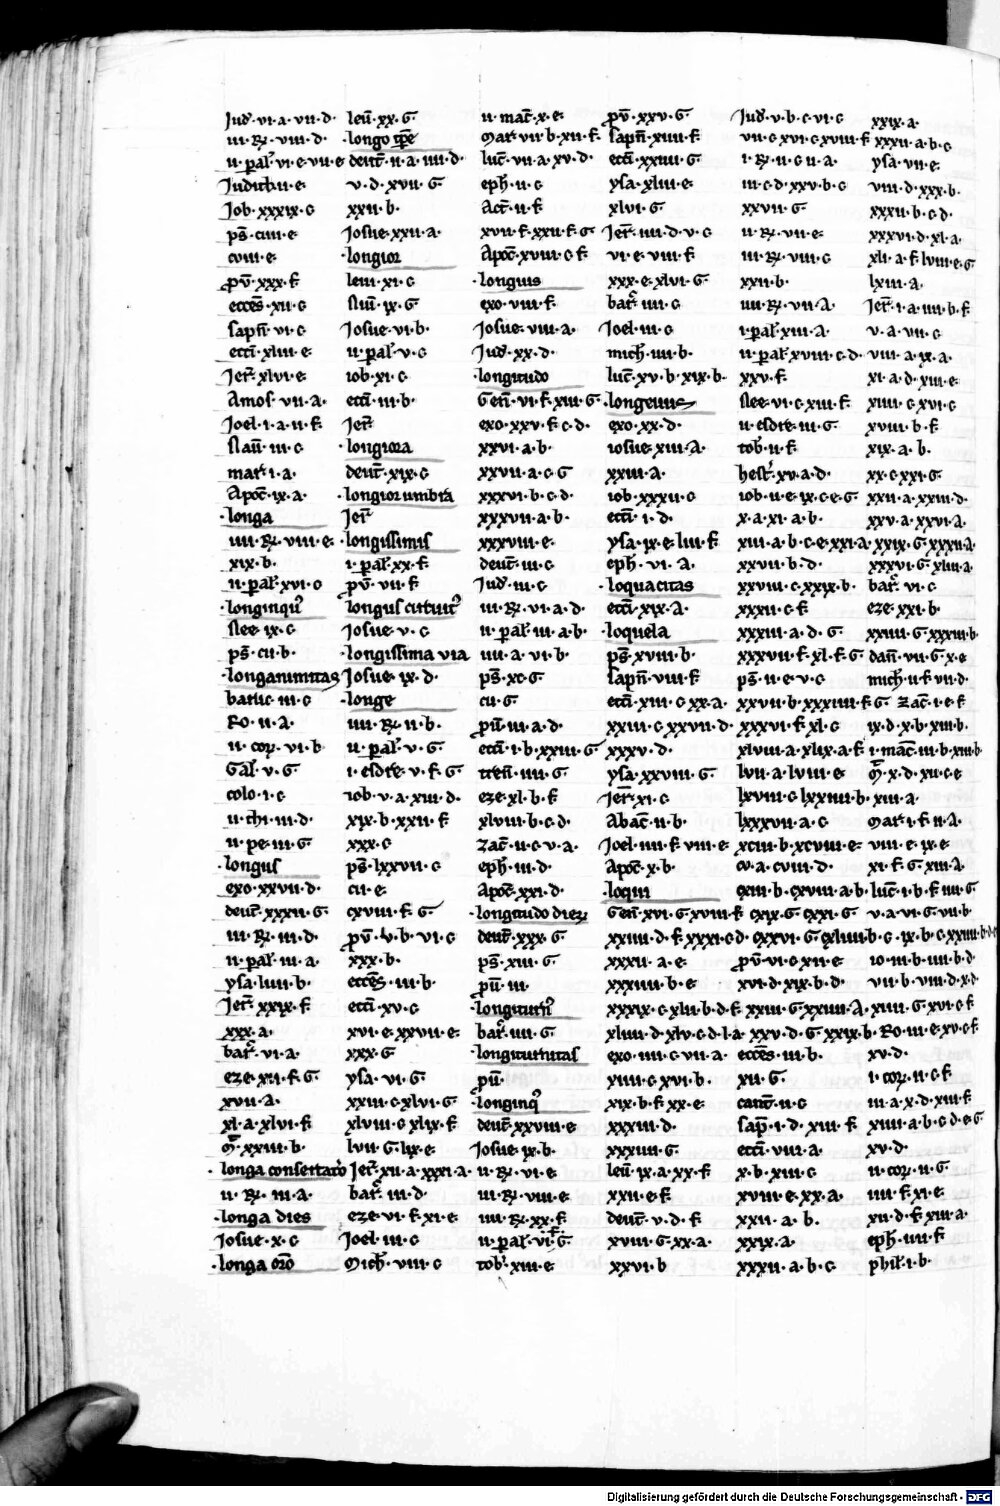 Jud̃ · vi · a · vii · d ·
iii · Rꝫ · viii · d ·
ii · pal̃ · vi · c · vii · e
Judith · ii · e ·
Job · xxxix · c
pš · ciii · e
cviii · e
pv̄ · xxx · f
ecces̄ · xii · c
sapn̄ · vi · c
ecci̅ · xliii · e
Jer̃ · xlvi · e
Amos · vii · a ·
Joel · i · a · ii · f
Nau̅ · iii · c
mat̃ · i · a ·
Apoc̃ · ix · a ·
· longa
iiii · Rꝫ · viii · e ·
xix · b ·
ii · pal̃ · xvi · c
· longinqu᷒
Nee · ix · c
pš · cii · b ·
· longanimitas
baruc · iii · c
Ro · ii · a ·
ii · cor̃ · vi · b
Gal̃ · v · G ·
colo · i · c
ii · thi · iii · d ·
ii · pe · iii · G
· longus
exo · xxvii · d ·
deut̃ · xxxii · G ·
iii · Rꝫ · iii · d ·
ii · pal̃ · iii · a ·
ysa · liiii · b ·
Jer̃ · xxix · f
xxx · a ·
bar̃ · vi · a ·
eze · xii · f · G ·
xvii · a ·
xl · a · xlvi · f
m̃ · xxiii · b ·
· longa consertat̃o
ii · Rꝫ · iii · a ·
· longa dies
Josue · x · c
· longa or̃o
leu̅ · xx · G ·
· longo tp̃e
deut̃ · ii · a · iiii · d ·
v · d · xvii · G ·
xxii · b ·
Josue · xxii · a ·
· longior
leui · xi · c
Nu̅ · ix · G ·
Josue · vi · b ·
ii · pal̃ · v · c
iob · xi · c
ecci̅ · iii · b ·
Jer̃
· longiora
deut̃ · xix · c
· longior umbra
Jer̃
· longissimis
i · pal̃ · xx · f ·
pv̄ · vii · f
longus
Josue · v · c
· longissima via
Josue · ix · d ·
· longe
iiii · Rꝫ · ii · b ·
ii · pal̃ · v · G ·
i · esdre · v · f · G
iob · v · a · xiii · d ·
xix · b · xxii · f
xxx · c
pš · lxxvii · c
cii · e
cxviii · f · G
pv̄ · v · b · vi · c
xxx · b ·
ecces̄ · iii · b ·
ecci̅ · xv · c
xvi · e · xxvii · e ·
xxx · G
ysa · vi · G ·
xxiii · c · xlvi · G ·
xlviii · c · xlix · f
lvii · G · lix · e
Jer̃ · xii · a · xxxi · a ·
bar̃ · iii · d ·
eze · vi · f · xi · e
Joel · iii · c
Mich̃ · viii · c
ii · mac̃ · x · e
Mat̃ · vii · b · xii · f
luc̃ · vii · a · xv · d ·
eph̃ · ii · c
Act̃ · ii · f
xvii · f · xxii · f · G
Apoc̃ · xviii · c · f
· longuis
exo · viii · f ·
Josue · viii · a ·
Jud̃ · xx · d ·
· longitudo
Gen̄ · vi · f · xiii · G
exo · xxv · f · c · d ·
xxvi · a · b ·
xxvii · a · c · G
xxxvi · b · c · d ·
xxxvii · a · b ·
xxxviii · e ·
deut̃ · iii · c
Jud̃ · iii · c
iii · Rꝫ · vi · a · d ·
ii · pal̃ · iii · a · b ·
iiii · a · vi · b ·
pš · xc · G ·
cii · G ·
pv̄ · iii · a · d ·
ecci̅ · i · b · xxiii · G
tren̄ · iiii · G ·
eze · xl · b · f
xlviii · b · c · d ·
zac̃ · ii · c · v · a ·
eph̃ · iii · d ·
Apoc̃ · xxi · d ·
· longitudo dierꝫ
deut̃ · xxx · G ·
pš · xiii · G
pv̄ · iii ·
bar̃ · iiii · G ·
· longiturnitas
pv̄ ·
· longinq᷒
deut̃ · xxviii · e
Josue · ix · b ·
ii · Rꝫ · vi · e ·
iii · Rꝫ · viii · e ·
iiii · Rꝫ · xx · f
ii · pal̃ · vi · G ·
tob̃ · xiii · e
pv̄ · xxv · G ·
sapn̄ · xiiii · f
ecci̅ · xxiiii · G
ysa · xliii · e
xlvi · G ·
Jer̃ · iiii · d · v · c
vi · e · viii · f
xxx · e · xlvi · G ·
bar̃ · iiii · c
Joel · iii · c
mich̃ · iiii · b ·
luc̃ · xv · b · xix · b ·
· longeuus
exo · xx · d ·
iosue · xiii · a ·
xxiii · a ·
iob · xxxii · c
ecci̅ · i · d ·
ysa · ix · e · liii · f
eph̃ · vi · a ·
· loquacitas
ecci̅ · xix · a ·
· loquela
pš · xviii · b ·
sapn̄ · viii · f
ecci̅ · xiii · c · xx · a ·
xxiii · c · xxvii · d ·
xxxv · d ·
ysa · xxviii · G ·
Jer̃ · xi · c
Abac̃ · ii · b ·
Joel · iiii · f · viii · e
Apoc̃ · x · b ·
· loqui
Gen̄ · xvi · G · xviii · f
xxiiii · d · f · xxxi · c · d ·
xxxii · a · e ·
xxxiiii · b · e
xxxix · c · xlii · b · d · f
xliiii · d · xlv · c · d · l · a ·
exo · iiii · c · vii · a ·
xiiii · c · xvi · b ·
xix · b · f · xx · e ·
xxxiii · d ·
xxxiiii · G ·
leu̅ · ix · a · xx · f
xxii · e · f
deut̃ · v · d · f
xviii · G · xx · a ·
xxvi · b
Jud̃ · v · b · c · vi · c
vii · c · xvi · c · xviii · f
i · Rꝫ · ii · c · ii · a ·
iii · c · d · xxv · b · c
xxvii · G ·
ii · Rꝫ · vii · e ·
iii · Rꝫ · viii · c
xxii · b ·
iiii · Rꝫ · vii · a ·
i · pal̃ · xiii · a ·
ii · pal̃ · xviii · c · d ·
xxv · f ·
Nee · vi · c · xiii · f ·
ii · esdre · iii · G
tob̃ · ii · f
hest̃ · xv · a · d ·
iob · ii · e · ix · c · e · G
x · a · xi · a · b ·
xiii · a · b · c · e · xxi · a
xxvii · b · d ·
xxviii · c · xxix · b ·
xxxii · c · f
xxxiii · a · d · G ·
xxxvii · f · xl · f · G
pš · ii · e · v · c
xxvii · b · xxxiiii · f · G
xxxvi · f · xl · c
xlviii · a · xlix · a · f
lvii · a · lviii · e
lxviii · c · lxxiiii · b ·
lxxxvii · a · c
xciii · b · xcviii · e
cv · a · cviii · d ·
cxiii · b · cxviii · a · b
cxix · G · cxxi · G
cxxvi · G · cxliiii · b · c
pv̄ · vi · c · xii · e
xvi · d · xix · b · d ·
xxiii · G · xxiiii · a ·
xxv · d · G · xxix · b ·
ecces̄ · iii · b ·
xii · G ·
cant̃ · ii · c
sap̃ · i · d · xiii · f
ecci̅ · viii · a ·
x · b · xiii · c
xviii · e · xx · a ·
xxii · a · b ·
xxix · a ·
xxxii · a · b · c
xxix · a ·
xxxii · a · b · c
ysa · vii · e ·
viii · d · xxx · b ·
xxxii · b · c · d ·
xxxvi · d · xl · a ·
xli · a · f · lviii · e · G
lxiii · a ·
Jer̃ · i · a · iiii · b · f
v · a · vii · c
viii · a · ix · a ·
xi · a · d · xiii · e
xiiii · c · xvi · c
xviii · b · f
xix · a · b ·
xx · c · xxi · G ·
xxii · a · xxiii · d ·
xxv · a · xxvi · a ·
xxix · G · xxxii · a
xxxvi · G · xliii · a
bar̃ · vi · c
eze · xxi · b
xxiiii · G · xxxiii · b
dan̄ · vii · G · x · e
mich̃ · ii · f · vii · d ·
zac̃ · i · e · f
ix · d · x · b · xiii · b ·
i · mac̃ · iii · b · xiii · b
m̃ · x · d · xii · c · e
xiii · a ·
Mat̃ · i · f · ii · a ·
viii · e · ix · e
xi · f · G · xiii · a
luc̃ · i · b · f · iiii · G
v · a · vi · G · vii · b ·
ix · b · c · xxiiii · b · d · e
io · iii · b · iiii · b · d
vii · b · viii · d · x · d
xiiii · G · xvi · c · f
Ro · iii · e · xv · c · f
xv · d ·
i · cor̃ · ii · c · f
iii · a · x · d · xiii · f
xiiii · a · b · c · d · e · G
xv · d ·
ii · cor̃ · ii · G
iiii · f · xi · e ·
xii · d · f · xiii · a ·
eph̃ · iiii · f
phil̃ · i · b ·
Digitalisierung gefördert durch die Deutsche Forschungsgemeinschaft - DFG